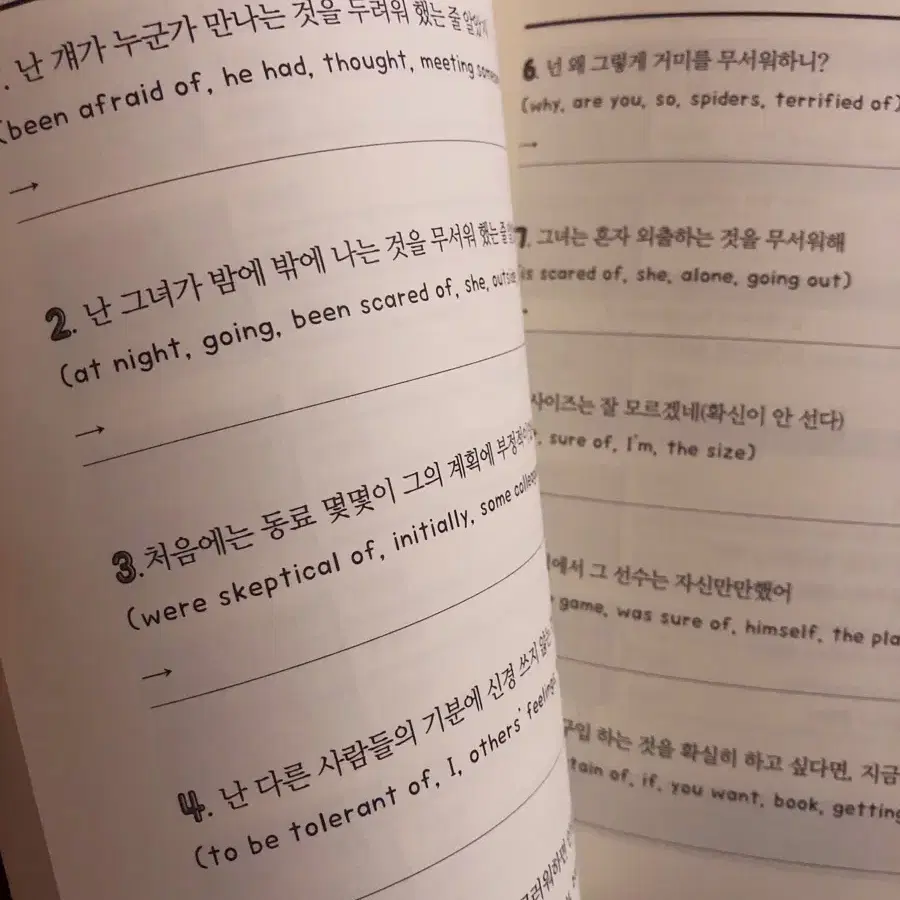 난 걔가 누군가 만나는 것을 두려워 했는 줄 알았어
(been afraid of, he had, thought, meeting
→
2. 난 그녀가 밤에 밖에 나는 것을 무서워 했는 줄
(at night, going, been scared of, she, outside
→
3. 처음에는 동료 몇몇이 그의 계획에
(were skeptical of, initially, some
→
4. 난 다른 사람들의 기분에 신경 쓰지 않는
(to be tolerant of, I, others' feelings
6. 넌 왜 그렇게 거미를 무서워하니?
(why, are you, so, spiders, terrified of)
→
7. 그녀는 혼자 외출하는 것을 무서워해
is scared of, she, alone, going out)
사이즈는 잘 모르겠네(확신이 안 선다)
sure of, I'm, the size)
에서 그 선수는 자신만만했어
game, was sure of, himself, the
구입 하는 것을 확실히 하고 싶다면, 지금
of, if, you want, book, getting